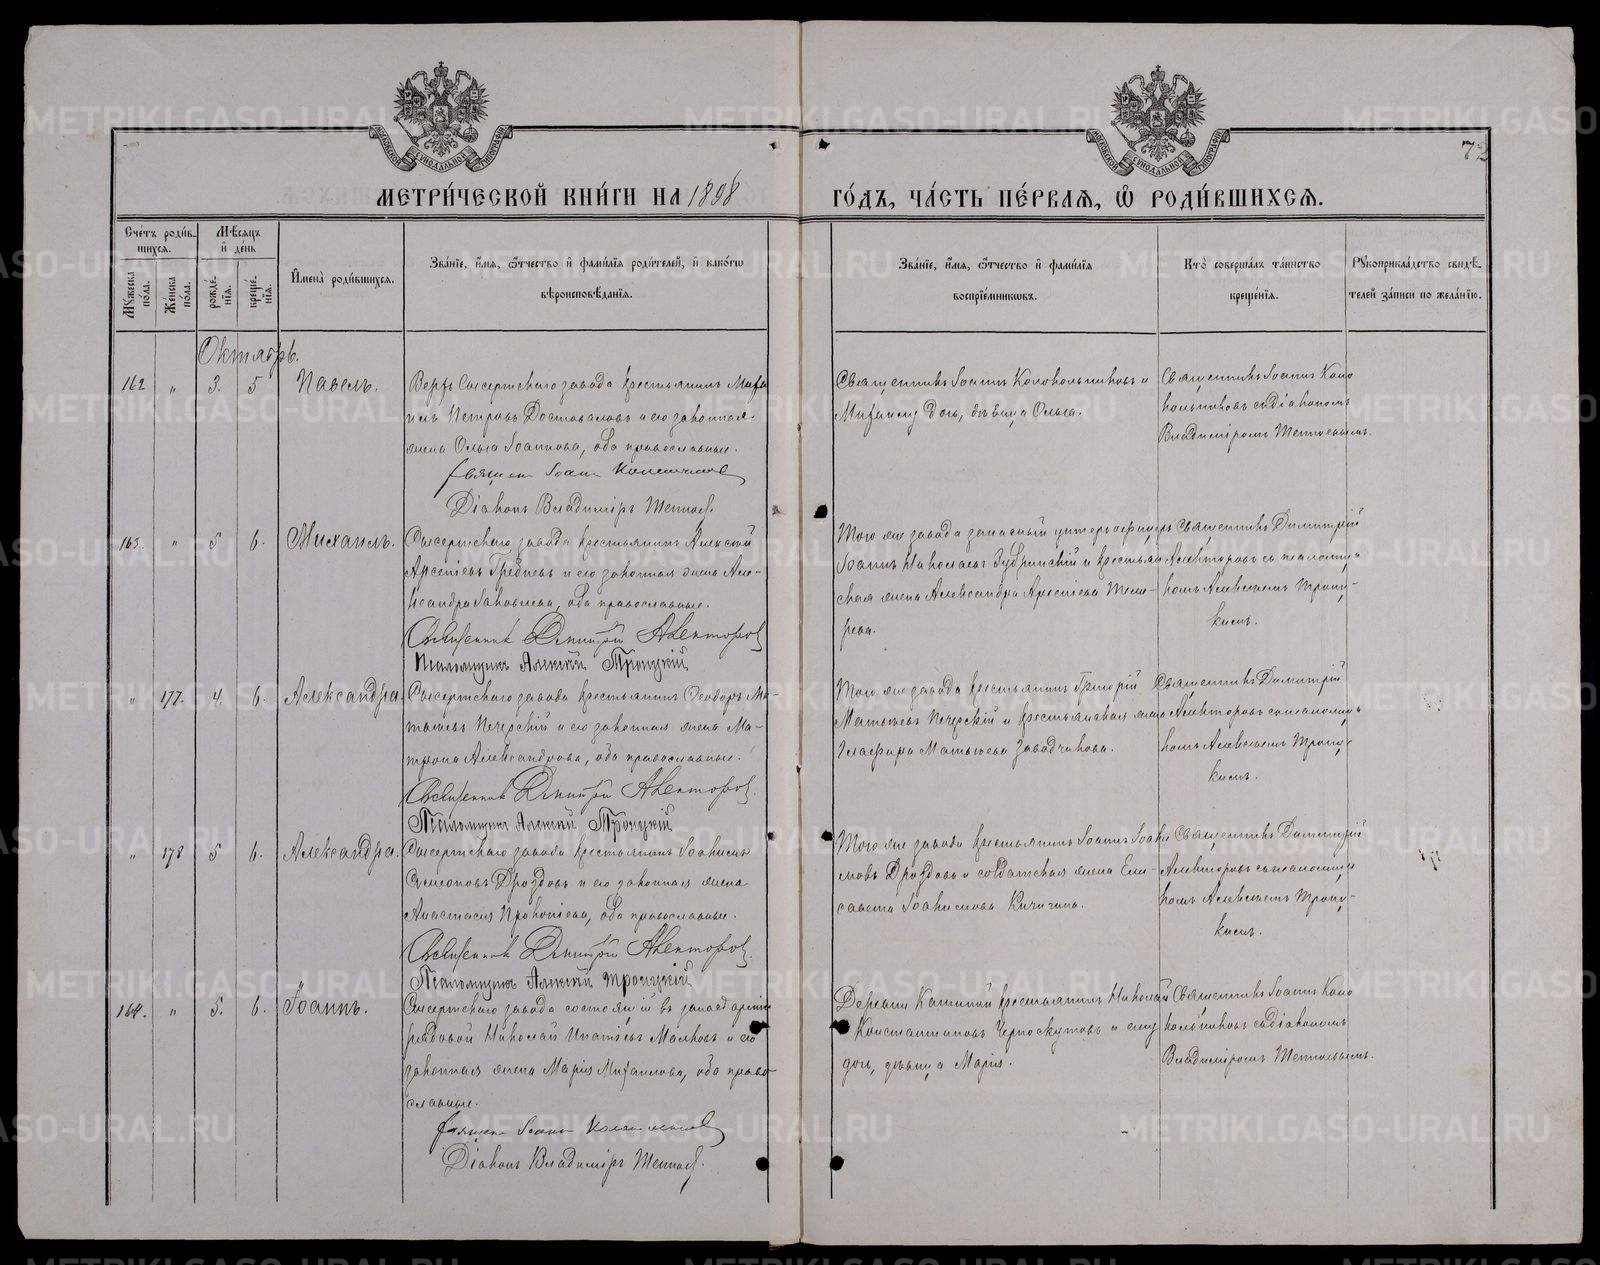 METRIKI.GASO-URAL.RU
72
МЕТРИ́ЧЕСКОЙ КНИ́ГИ НА 1898 ГО́ДЪ, ЧА́СТЬ ПЕ́РВАЯ, Ѡ҆ РОДИ́ВШИХСЯ.
Сче́тъ роди́вшихся.
Мѣ́сяцъ и҆ де́нь
Му́жеска по́ла.
Же́нска по́ла.
рожде́нїя.
креще́нїя.
И҆мена̀ роди́вшихся.
Зва́нїе, и҆́мя, ѻ҆́тчество и҆ фами́лїя роди́телей, и҆ како́гѡ
вѣроисповѣ́данїя.
Зва́нїе, и҆́мя, ѻ҆́тчество и҆ фами́лїя
воспрїе́мниковъ.
Кто̀ соверша́лъ та́инство
креще́нїя.
Рꙋкоприкла́дство свидѣ́-
телей за́писи по жела́нїю.
Октябрь.
162 " 3. 5 Павелъ.
Верхъ Сысертскаго завода крестьянинъ Миха
илъ Петровъ Достоваловъ и его законная
жена Ольга Іоаннова, оба православные.
Діаконъ Владиміръ
Священникъ Іоаннъ Колокольниковъ и
дочь, дѣвица Ольга.
Священникъ Іоаннъ Коло
кольниковъ съ діакономъ
Владиміромъ
163. " 5 6. Михаилъ.
Сысертскаго завода крестьянинъ Алексѣй
Арсеніевъ и его законная жена Але-
ксандра Іаковлева, оба православные.
Священникъ Димитрій Алекторовъ
Псаломщикъ Алексѣй Троицкій
Того же завода запасный унтеръ-офицеръ
Іоаннъ Николаевъ и крестьян
ская жена Александра Арсеніева
Священникъ Димитрій
Алекторовъ съ псаломщи
комъ Алексѣемъ Троиц-
кимъ.
" 177. 4. 6. Александра.
Сысертскаго завода крестьянинъ Ѳеодоръ Ма-
тѳіевъ Печерскій и его законная жена Ма-
трона Александрова, оба православные.
Священникъ Димитрій Алекторовъ.
Псаломщикъ Алексѣй Троицкій
Того же завода крестьянинъ Григорій
Матѳіевъ Печерскій и крестьянская жена
Глафира Матѳіева Заводчикова.
Священникъ Димитрій
Алекторовъ съ псаломщи
комъ Алексѣемъ Троиц-
кимъ.
" 178 5 6. Александра.
Сысертскаго завода крестьянинъ Іоакимъ
Симеоновъ Дроздовъ и его законная жена
Анастасія Прокопіева, оба православные.
Священникъ Димитрій Алекторовъ.
Псаломщикъ Алексѣй Троицкій
Того же завода крестьянинъ Іоаннъ Іоаки
мовъ Дроздовъ и солдатская жена Ели-
савета Іоакимова Кичигина.
Священникъ Димитрій
Алекторовъ съ псаломщи
комъ Алексѣемъ Троиц-
кимъ.
164. " 5. 6. Іоаннъ.
Сысертскаго завода состоящій въ запасѣ арміи
рядовой Николай Игнатіевъ Малковъ и его
законная жена Марія Михаилова, оба право-
славные.
Діаконъ Владиміръ
Деревни крестьянинъ Николай
Константиновъ Черноскутовъ и ему
дочь, дѣвица Марія.
Священникъ Іоаннъ Коло
кольниковъ съ діакономъ
Владиміромъ